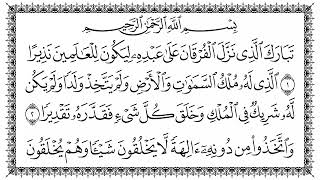 بِسْمِ اللَّهِ الرَّحْمَٰنِ الرَّحِيمِ
تَبَارَكَ الَّذِي نَزَّلَ الْفُرْقَانَ عَلَىٰ عَبْدِهِ لِيَكُونَ لِلْعَالَمِينَ نَذِيرًا
۝١ الَّذِي لَهُ مُلْكُ السَّمَٰوَاتِ وَالْأَرْضِ وَلَمْ يَتَّخِذْ وَلَدًا وَلَمْ يَكُن
لَّهُ شَرِيكٌ فِي الْمُلْكِ وَخَلَقَ كُلَّ شَيْءٍ فَقَدَّرَهُ تَقْدِيرًا ۝٢
وَاتَّخَذُوا مِن دُونِهِ ءَالِهَةً لَّا يَخْلُقُونَ شَيْئًا وَهُمْ يُخْلَقُونَ